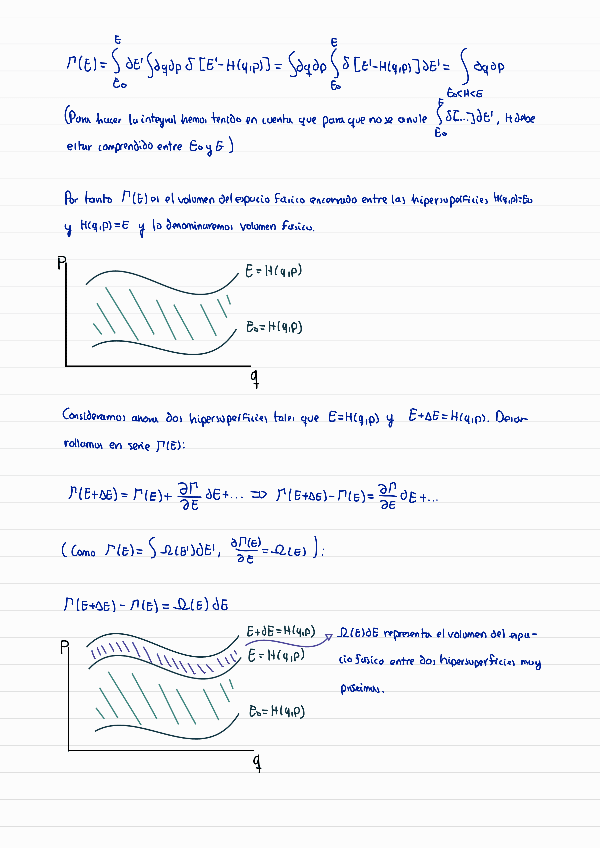 Γ(E) = ∫_{E₀}^{E} dE' ∫dqdp δ [E'-H(q,p)] = ∫dqdp ∫_{E₀}^{E} δ [E'-H(q,p)] dE' = ∫_{E₀<H<E} dqdp
(Para hacer la integral hemos tenido en cuenta que para que no se anule ∫_{E₀}^{E} δ[...]dE', H debe
estar comprendido entre E₀ y E)
Por tanto Γ(E) es el volumen del espacio fásico encerrado entre las hipersuperficies H(q,p)=E₀
y H(q,p)=E y lo denominaremos volumen fásico.
P
E = H(q,p)
E₀ = H(q,p)
q
Consideramos ahora dos hipersuperficies tales que E=H(q,p) y E+ΔE=H(q,p). Desar-
rollamos en serie Γ(E):
Γ(E+ΔE) = Γ(E) + ∂Γ/∂E dE+... ⇒ Γ(E+ΔE)-Γ(E) = ∂Γ/∂E dE+...
(Como Γ(E) = ∫ Ω(E')dE', ∂Γ(E)/∂E = Ω(E)):
Γ(E+ΔE) - Γ(E) = Ω(E) dE
P
E+dE = H(q,p)
E = H(q,p)
E₀ = H(q,p)
q
Ω(E)dE representa el volumen del espa-
cio fásico entre dos hipersuperficies muy
próximas.